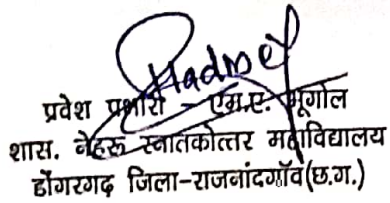 प्रवेश प्रभारी - एम.ए. भूगोल
शास. नेहरू स्नातकोत्तर महाविद्यालय
डोंगरगढ़ जिला-राजनांदगॉव (छ.ग.)